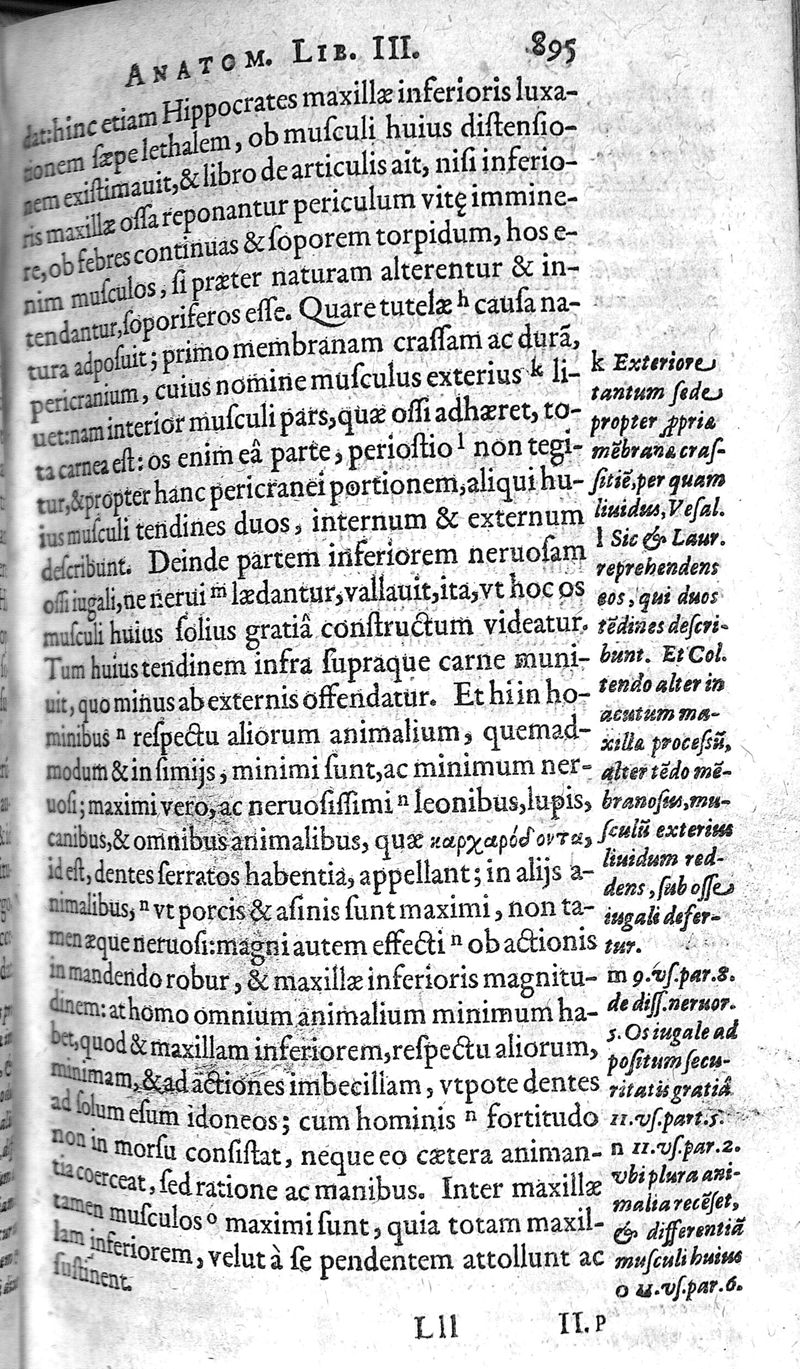 ANATOM. LIB. III. 895
dat: hinc etiam Hippocrates maxillæ inferioris luxa-
tionem ſæpe lethalem, ob muſculi huius diſtenſio-
nem exiſtimauit, & libro de articulis ait, niſi inferio-
ris maxillæ oſſa reponantur periculum vitę immine-
re, ob febres continuas & ſoporem torpidum, hos e-
nim muſculos, ſi præter naturam alterentur & in-
tendantur, ſoporiferos eſſe. Quare tutelæ h cauſa na-
tura adpoſuit; primo membranam craſſam ac durã,
pericranium, cuius nomine muſculus exterius k li-
uet: nam interior muſculi pars, quæ oſſi adhæret, to-
ta carnea eſt: os enim eâ parte, perioſtio l non tegi-
tur, & propter hanc pericranei portionem, aliqui hu-
ius muſculi tendines duos, internum & externum
deſcribunt. Deinde partem inferiorem neruoſam
oſſi iugali, ne nerui m lædantur, vallauit, ita, vt hoc os
muſculi huius ſolius gratiâ conſtructum videatur.
Tum huius tendinem infra ſupraque carne muni-
uit, quo minus ab externis offendatur. Et hi in ho-
minibus n reſpectu aliorum animalium, quemad-
modum & in ſimijs, minimi ſunt, ac minimum ner-
uoſi; maximi vero, ac neruoſiſſimi n leonibus, lupis,
canibus, & omnibus animalibus, quæ καρχαρόδοντα,
id eſt, dentes ſerratos habentia, appellant; in alijs a-
nimalibus, n vt porcis & aſinis ſunt maximi, non ta-
men æque neruoſi: magni autem effecti n ob actionis
in mandendo robur, & maxillæ inferioris magnitu-
dinem: at homo omnium animalium minimum ha-
bet, quod & maxillam inferiorem, reſpectu aliorum,
minimam, & ad actiones imbecillam, vtpote dentes
ad ſolum eſum idoneos; cum hominis n fortitudo
non in morſu conſiſtat, neque eo cætera animan-
tia coerceat, ſed ratione ac manibus. Inter maxillæ
tamen muſculos o maximi ſunt, quia totam maxil-
lam inferiorem, velut à ſe pendentem attollunt ac
ſuſtinent.
k Exteriore
tantum ſede
propter ꝓpriæ
mẽbranæ craſ-
ſitiẽ, per quam
liuidus, Veſal.
l Sic & Laur.
reprehendens
eos, qui duos
tẽdines deſcri-
bunt. Et Col.
tendo alter in
acutum ma-
xillæ proceſsũ,
alter tẽdo mẽ-
branoſus, mu-
ſculũ exterius
liuidum red-
dens, ſub oſſe
iugali defer-
tur.
m 9. vſ. par. 8.
de diſſ. neruor.
5. Os iugale ad
poſitum ſecu-
ritatis gratiâ
11. vſ. part. 5.
n 11. vſ. par. 2.
vbi plura ani-
malia recẽſet,
& differentiã
muſculi huius
o 11. vſ. par. 6.
Lll II. P